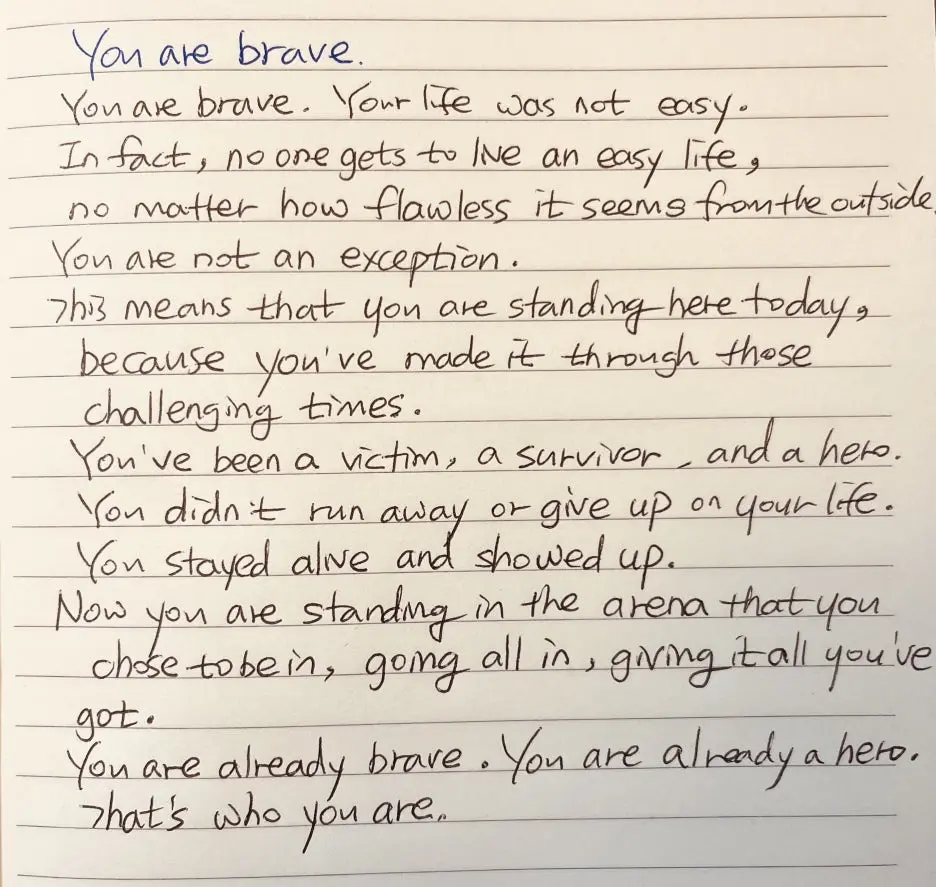 You are brave.
You are brave. Your life was not easy.
In fact, no one gets to live an easy life,
no matter how flawless it seems from the outside.
You are not an exception.
This means that you are standing here today,
because you've made it through those
challenging times.
You've been a victim, a survivor, and a hero.
You didn't run away or give up on your life.
You stayed alive and showed up.
Now you are standing in the arena that you
chose to be in, going all in, giving it all you've
got.
You are already brave. You are already a hero.
That's who you are.